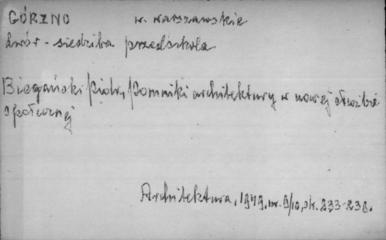 GÓRZNO w. warszawskie
dwór - siedziba przedszkola
Biegański Piotr, Pomniki architektury w nowej służbie
społecznej
Architektura, 1949, nr. 9/10, str. 233-238.